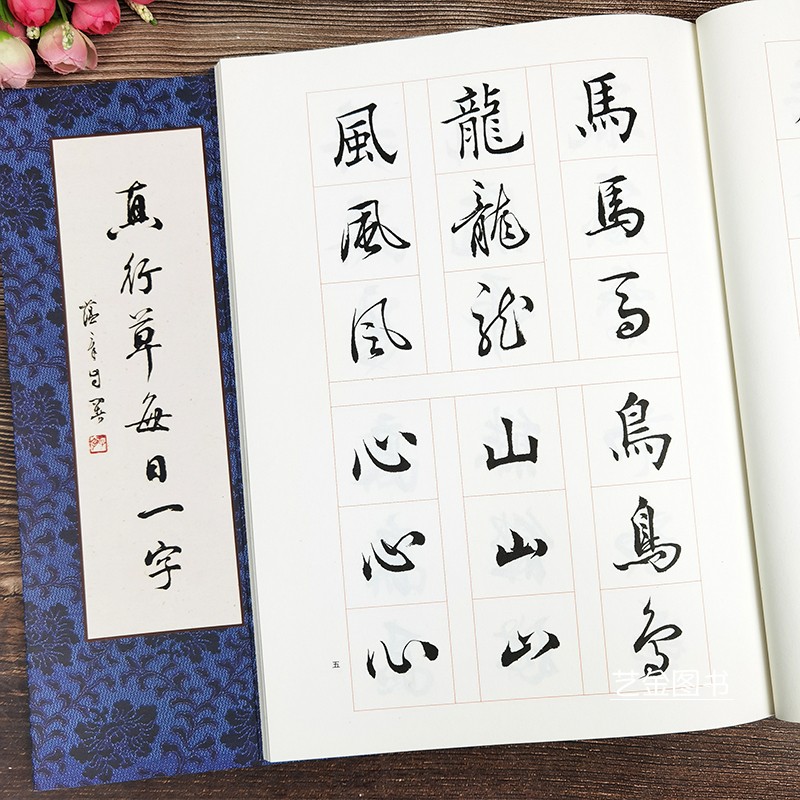 真行草每日一字
馬馬馬
龍龍龍
風風風
鳥鳥鳥
山山山
心心心
五
艺金图书